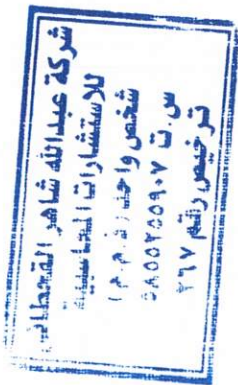 شركة عبدالله شاهر القحطاني
للاستشارات المحاسبية
شخص واحد ذ.م.م
س.ت ٥٨٥٥٣٥٥٩٠٧
ترخيص رقم ٣٦٧